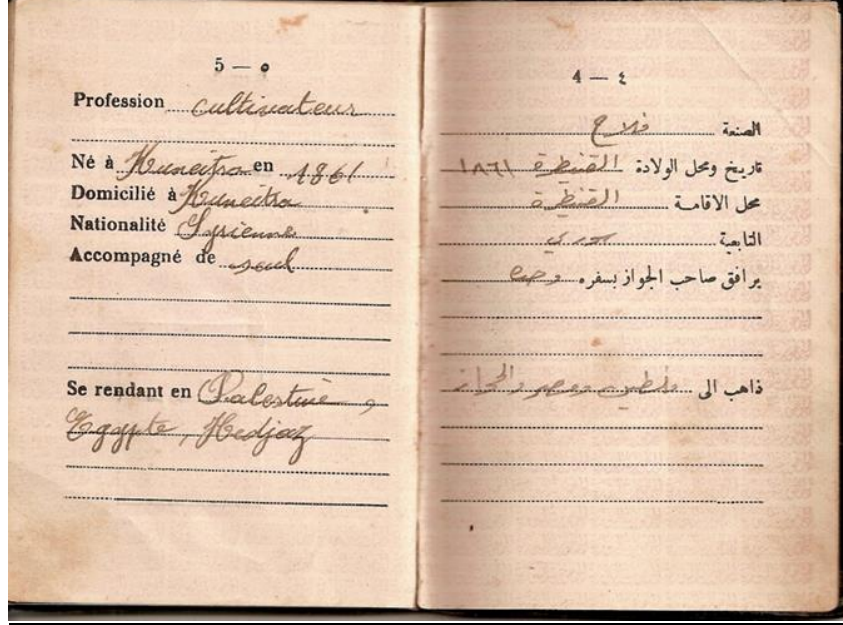 5 — ٥
Profession cultivateur
Né à Kuneitra en 1861
Domicilié à Kuneitra
Nationalité Syrienne
Accompagné de seul
Se rendant en Palestine,
Egypte, Hedjaz
4 — ٤
الصنعة فلاح
تاريخ ومحل الولادة القنيطرة ١٨٦١
محل الاقامة القنيطرة
التابعية سوري
يرافق صاحب الجواز بسفره وحده
ذاهب الى فلسطين ومصر والحجاز